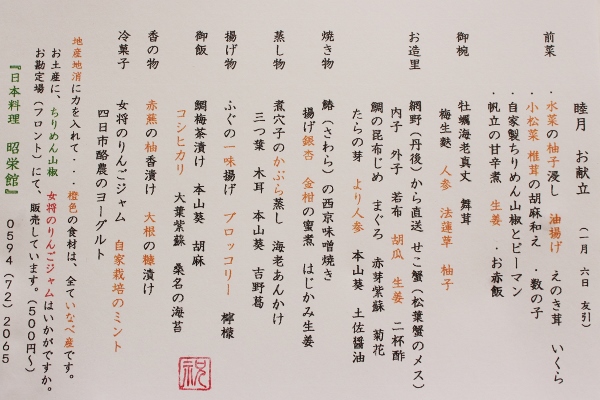 睦月 お献立 （一月 六日 友引）
前菜 ・水菜の柚子浸し 油揚げ えのき茸 いくら
・小松菜 椎茸の胡麻和え ・数の子
・自家製ちりめん山椒とピーマン
・帆立の甘辛煮 生姜 ・お赤飯
御椀 牡蠣海老真丈 舞茸
梅生麩 人参 法蓮草 柚子
お造里 網野（丹後）から直送 せこ蟹（松葉蟹のメス）
内子 外子 若布 胡瓜 生姜 二杯酢
鯛の昆布じめ まぐろ 赤芽紫蘇 菊花
たらの芽 より人参 本山葵 土佐醤油
焼き物 鰆（さわら）の西京味噌焼き
揚げ銀杏 金柑の蜜煮 はじかみ生姜
蒸し物 煮穴子のかぶら蒸し 海老あんかけ
三つ葉 木耳 本山葵 吉野葛
揚げ物 ふぐの一味揚げ ブロッコリー 檸檬
御飯 鯛梅茶漬け 本山葵 胡麻
コシヒカリ 大葉紫蘇 桑名の海苔
香の物 赤蕪の柚香漬け 大根の糠漬け
冷菓子 女将のりんごジャム 自家栽培のミント
四日市酪農のヨーグルト
地産地消に力を入れて・・橙色の食材は、全ていなべ産です。
お土産に、ちりめん山椒 女将のりんごジャムはいかがですか。
お勘定場（フロント）にて、販売しています。（500円〜）
『日本料理 昭栄館』 0594（72）2065
祝